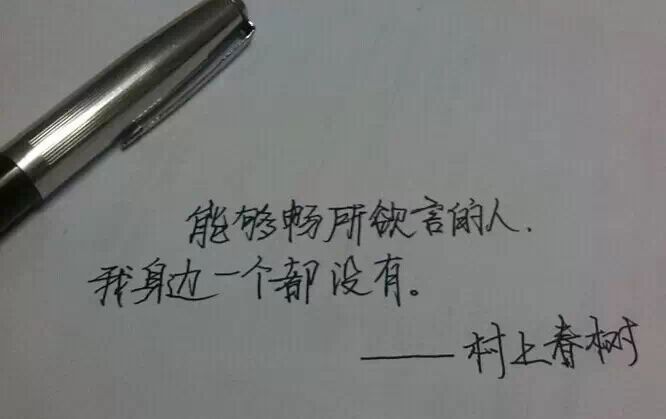 能够畅所欲言的人.
我身边一个都没有。
——村上春树